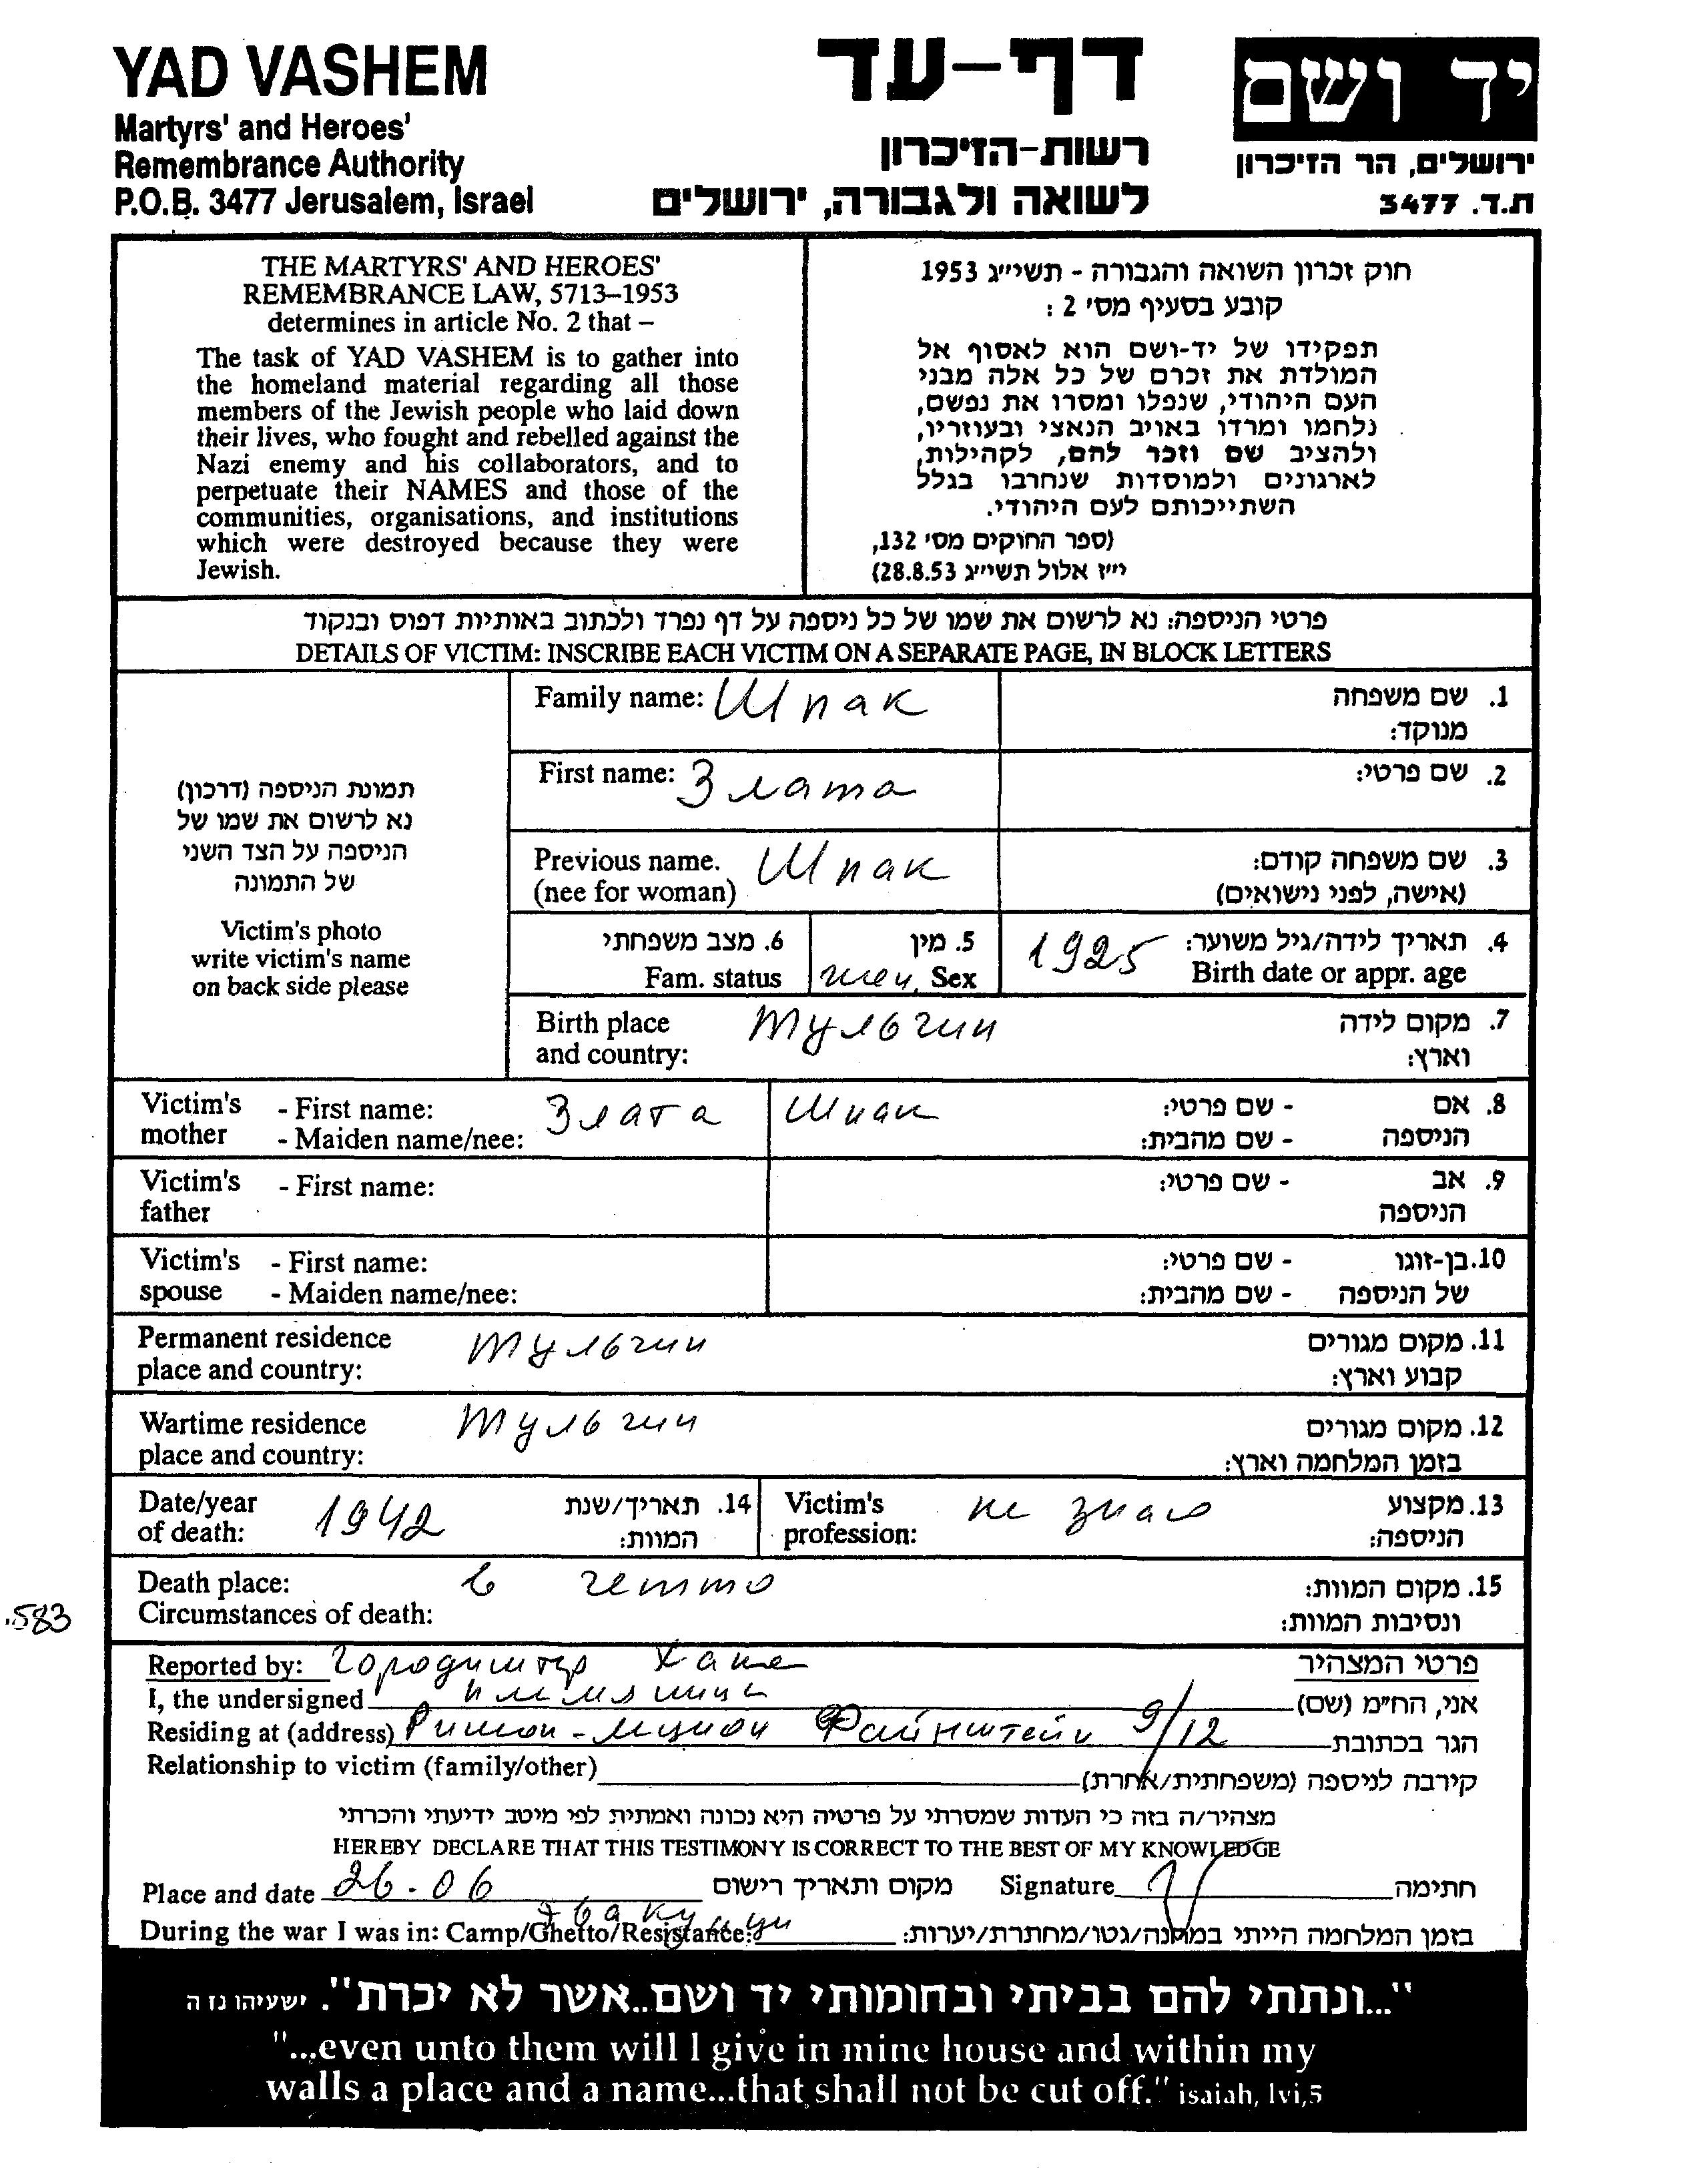 YAD VASHEM
Martyrs' and Heroes'
Remembrance Authority
P.O.B. 3477 Jerusalem, Israel
דף-עד
רשות-הזיכרון
לשואה ולגבורה, ירושלים
יד ושם
ירושלים, הר הזיכרון
ת.ד. 3477
THE MARTYRS' AND HEROES'
REMEMBRANCE LAW, 5713–1953
determines in article No. 2 that –
The task of YAD VASHEM is to gather into
the homeland material regarding all those
members of the Jewish people who laid down
their lives, who fought and rebelled against the
Nazi enemy and his collaborators, and to
perpetuate their NAMES and those of the
communities, organisations, and institutions
which were destroyed because they were
Jewish.
חוק זכרון השואה והגבורה - תשי״ג 1953
קובע בסעיף מס׳ 2 :
תפקידו של יד-ושם הוא לאסוף אל
המולדת את זכרם של כל אלה מבני
העם היהודי, שנפלו ומסרו את נפשם,
נלחמו ומרדו באויב הנאצי ובעוזריו,
ולהציב שם וזכר להם, לקהילות,
לארגונים ולמוסדות שנחרבו בגלל
השתייכותם לעם היהודי.
(ספר החוקים מס׳ 132,
י״ז אלול תשי״ג 28.8.53)
פרטי הניספה: נא לרשום את שמו של כל ניספה על דף נפרד ולכתוב באותיות דפוס ובנקוד
DETAILS OF VICTIM: INSCRIBE EACH VICTIM ON A SEPARATE PAGE, IN BLOCK LETTERS
תמונת הניספה (דרכון)
נא לרשום את שמו של
הניספה על הצד השני
של התמונה
Victim's photo
write victim's name
on back side please
Family name: Шпак 1. שם משפחה
מנוקד:
First name: Злата 2. שם פרטי:
Previous name. Шпак 3. שם משפחה קודם:
(nee for woman) (אישה, לפני נישואים)
6. מצב משפחתי 5. מין 1925 4. תאריך לידה/גיל משוער:
Fam. status жен. Sex Birth date or appr. age
Birth place Тульчин 7. מקום לידה
and country: וארץ:
Victim's - First name: Злата Шпак - שם פרטי: 8. אם
mother - Maiden name/nee: - שם מהבית: הניספה
Victim's - First name: - שם פרטי: 9. אב
father הניספה
Victim's - First name: - שם פרטי: 10.בן-זוגו
spouse - Maiden name/nee: - שם מהבית: של הניספה
Permanent residence Тульчин 11. מקום מגורים
place and country: קבוע וארץ:
Wartime residence Тульчин 12. מקום מגורים
place and country: בזמן המלחמה וארץ:
Date/year 1942 14. תאריך/שנת Victim's не знаю 13. מקצוע
of death: המוות: profession: הניספה:
Death place: в гетто 15. מקום המוות:
583
Circumstances of death: ונסיבות המוות:
Reported by: Хана פרטי המצהיר
I, the undersigned אני, הח״מ (שם)
Residing at (address) Ришон-Лецион Файнштейн 9/12 הגר בכתובת
Relationship to victim (family/other) קירבה לניספה (משפחתית/אחרת)
מצהיר/ה בזה כי העדות שמסרתי על פרטיה היא נכונה ואמתית לפי מיטב ידיעתי והכרתי
HEREBY DECLARE THAT THIS TESTIMONY IS CORRECT TO THE BEST OF MY KNOWLEDGE
Place and date 26.06 מקום ותאריך רישום Signature חתימה
During the war I was in: Camp/Ghetto/Resistance: בזמן המלחמה הייתי במחנה/גטו/מחתרת/יערות:
"...ונתתי להם בביתי ובחומותי יד ושם..אשר לא יכרת". ישעיהו נז ה
"...even unto them will I give in mine house and within my
walls a place and a name...that shall not be cut off." isaiah, lvi,5